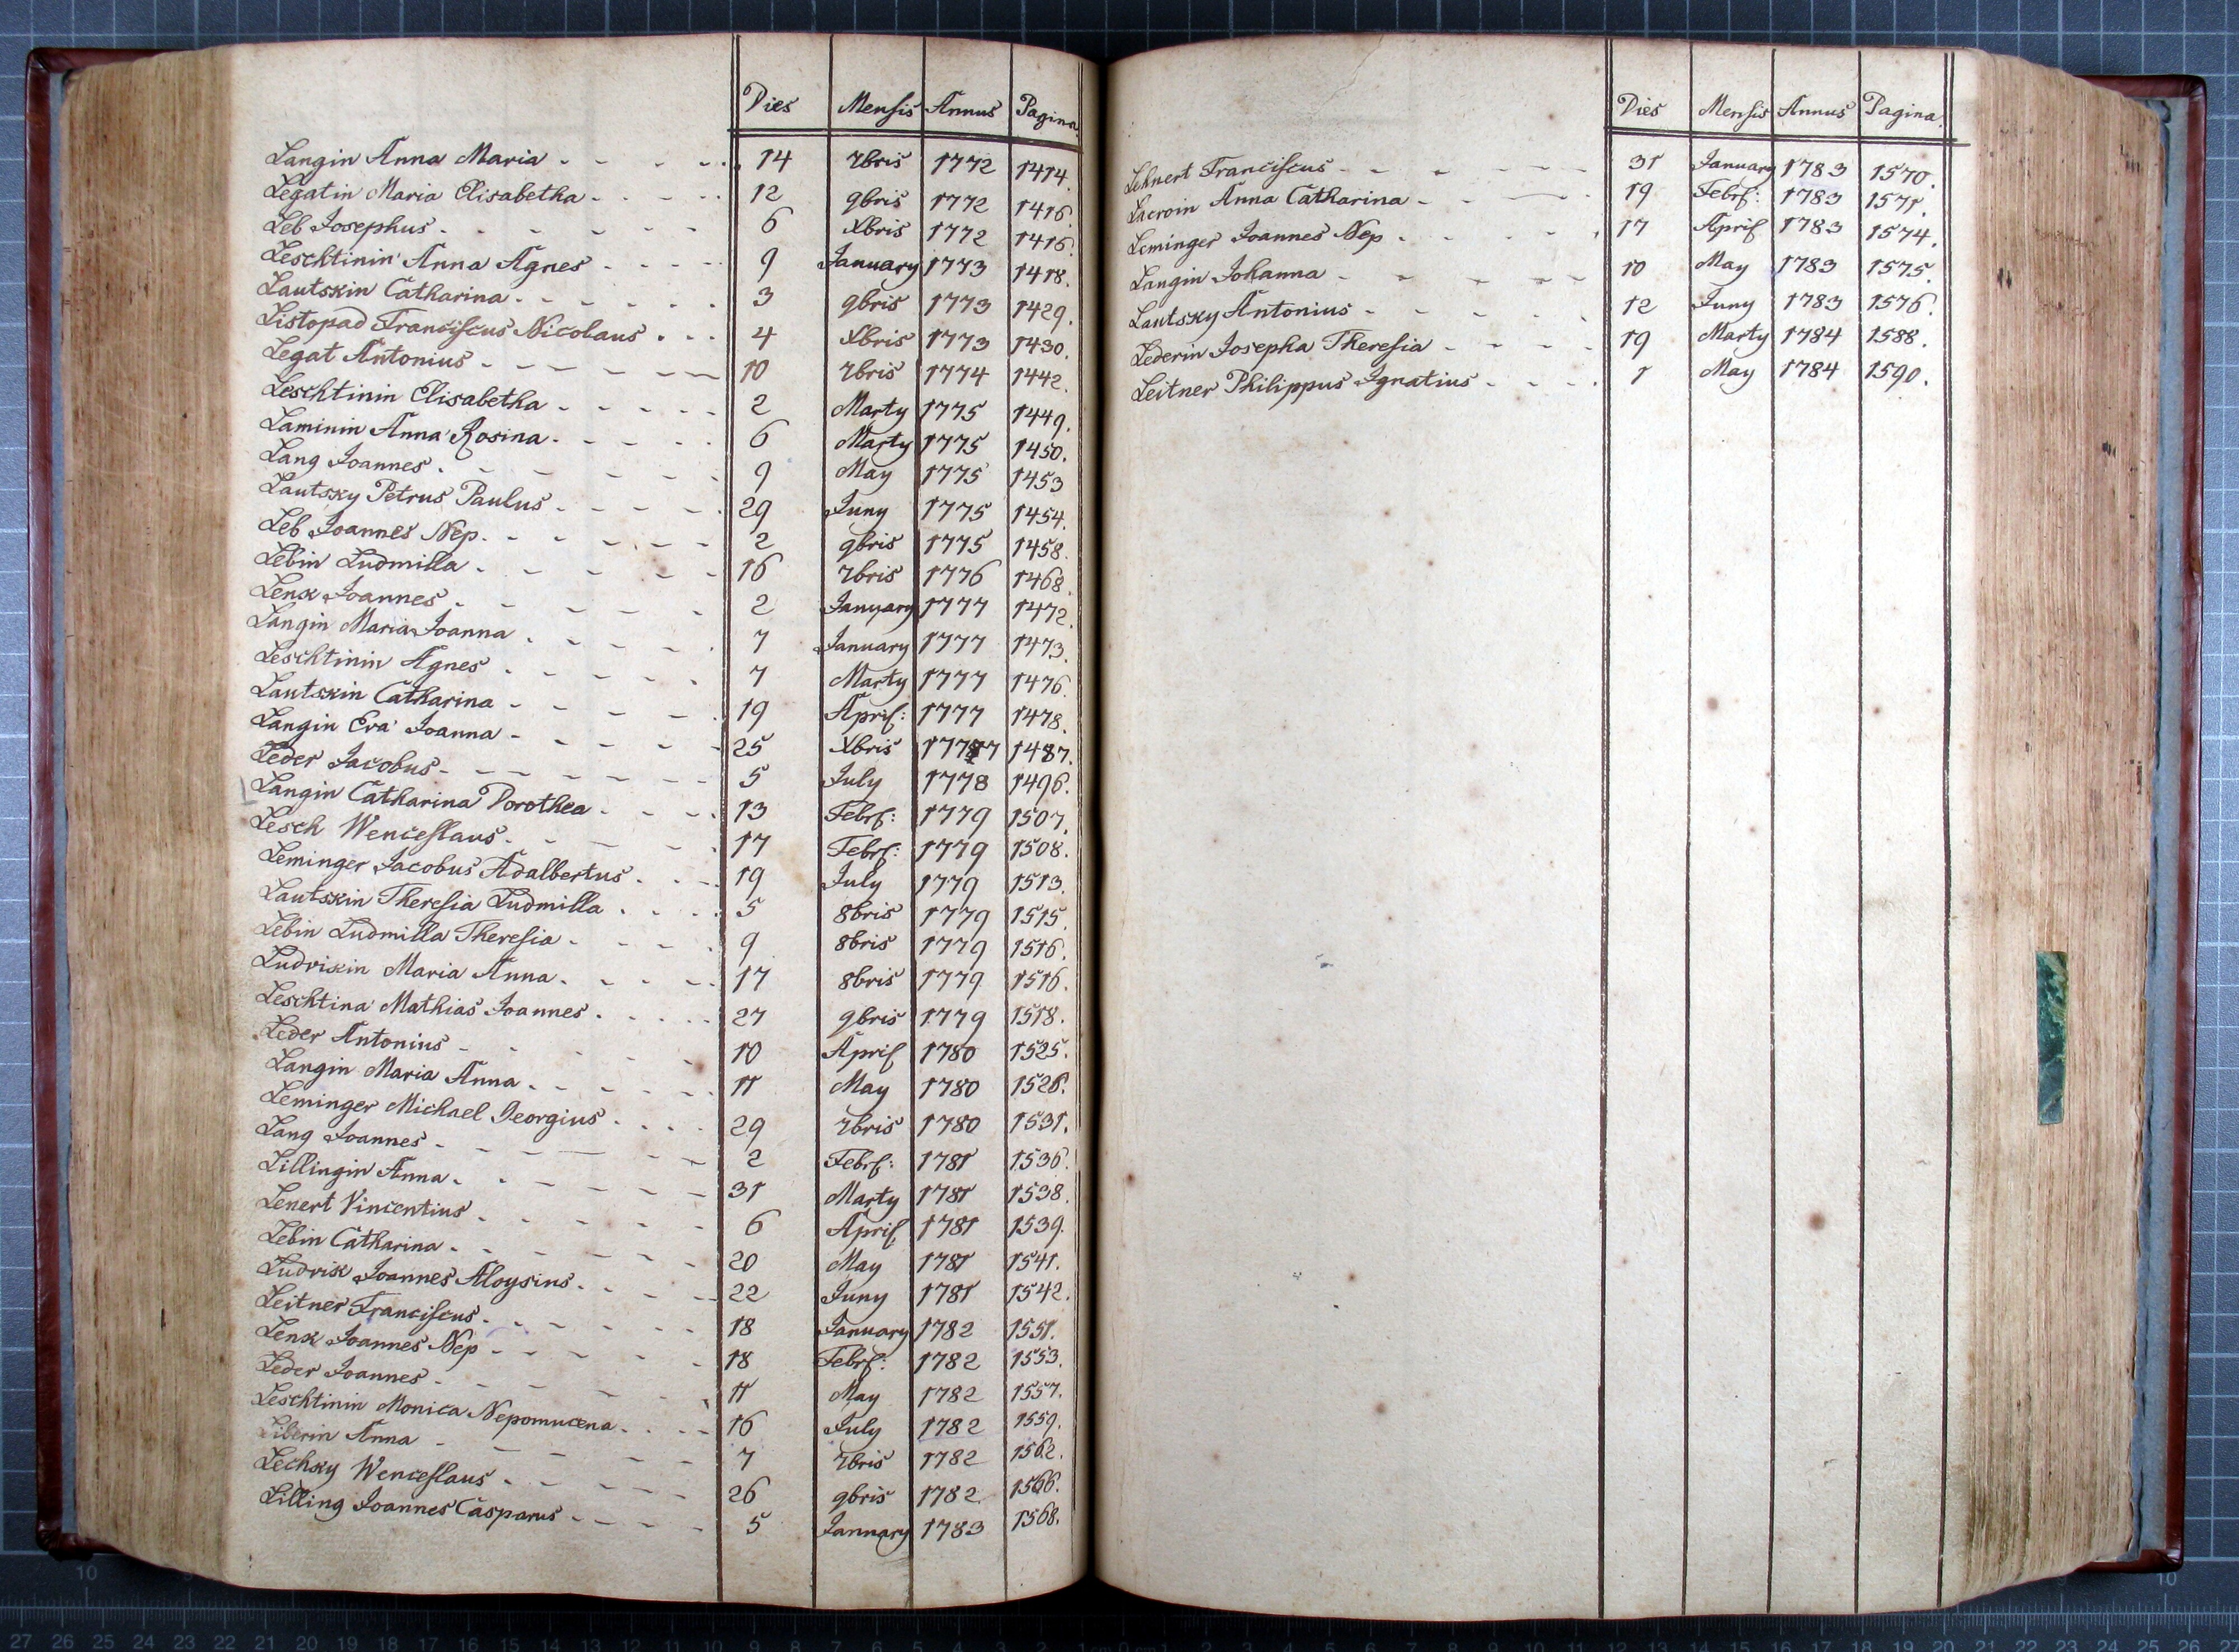 Dies Mensis Annus Pagina.
Langin Anna Maria 14 7bris 1772 1414.
Legatin Maria Elisabetha 12 9bris 1772 1416.
Leb Josephus 6 Xbris 1772 1416.
Leschtinin Anna Agnes 9 January 1773 1418.
Lautskin Catharina 3 9bris 1773 1429.
Listopad Franciscus Nicolaus 4 Xbris 1773 1430.
Legat Antonius 10 7bris 1774 1442.
Leschtinin Elisabetha 2 Marty 1775 1449.
Laminin Anna Rosina 6 Marty 1775 1450.
Lang Joannes 9 May 1775 1453
Lautsky Petrus Paulus 29 Juny 1775 1454.
Leb Joannes Nep. 2 9bris 1775 1458.
Lebin Ludmilla 16 7bris 1776 1468.
Lenk Joannes 2 January 1777 1472.
Langin Maria Joanna 7 January 1777 1473.
Leschtinin Agnes 7 Marty 1777 1476.
Lautskin Catharina 19 April: 1777 1478.
Langin Eva Joanna 25 Xbris 1777 1487.
Leder Jacobus 5 July 1778 1496.
Langin Catharina Dorothea 13 Febr: 1779 1507.
Lesch Wenceslaus 17 Febr: 1779 1508.
Leminger Jacobus Adalbertus 19 July 1779 1513.
Lautskin Theresia Ludmilla 5 8bris 1779 1515.
Lebin Ludmilla Theresia 9 8bris 1779 1516.
Ludvikin Maria Anna 17 8bris 1779 1516.
Leschtina Mathias Joannes 27 9bris 1779 1518.
Leder Antonius 10 April 1780 1525.
Langin Maria Anna 11 May 1780 1526.
Leminger Michael Georgius 29 7bris 1780 1531.
Lang Joannes 2 Febr: 1781 1536.
Lillingin Anna 31 Marty 1781 1538.
Lenert Vincentius 6 April 1781 1539.
Lebin Catharina 20 May 1781 1541.
Ludvik Joannes Aloysius 22 Juny 1781 1542.
Leitner Franciscus 18 January 1782 1551.
Lenk Joannes Nep 18 Febr: 1782 1553.
Leder Joannes 11 May 1782 1557.
Leschtinin Monica Nepomucena 16 July 1782 1559.
Liberin Anna 7 7bris 1782 1562.
Lechsky Wenceslaus 26 9bris 1782 1566.
Lilling Joannes Casparus 5 January 1783 1568.
Dies Mensis Annus Pagina.
Lehnert Franciscus 31 January 1783 1570.
Lacroin Anna Catharina 19 Febr: 1783 1571.
Leminger Joannes Nep 17 April 1783 1574.
Langin Johanna 10 May 1783 1575.
Lautsky Antonius 12 Juny 1783 1576.
Lederin Josepha Theresia 19 Marty 1784 1588.
Leitner Philippus Ignatius 1 May 1784 1590.